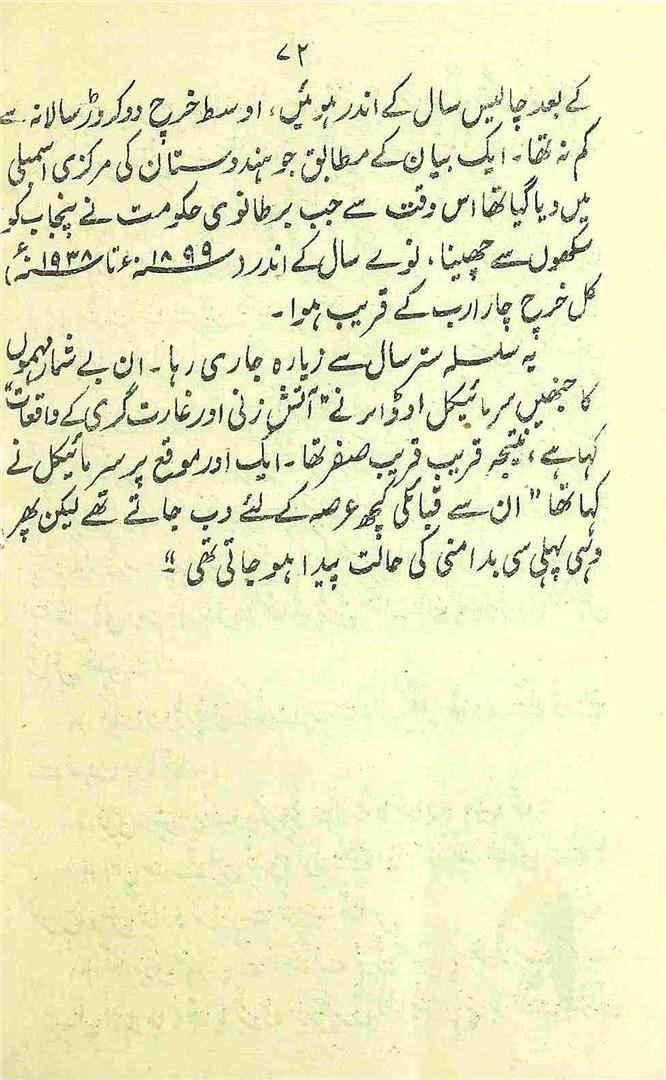 ۷۲
کے بعد چالیس سال کے اندر ہوئیں، اوسط خرچ دو کروڑ سالانہ سے
کم نہ تھا۔ ایک بیان کے مطابق جو ہندوستان کی مرکزی اسمبلی
میں دیا گیا تھا اس وقت سے جب برطانوی حکومت نے پنجاب کو
سکھوں سے چھینا، نوے سال کے اندر (۱۸۹۹ء تا ۱۹۳۸ء)
کل خرچ چار ارب کے قریب ہوا۔
یہ سلسلہ ستر سال سے زیادہ جاری رہا۔ ان بے شمار مہموں
کا جنھیں سر مائیکل اوڈائر نے "آتش زنی اور غارت گری کے واقعات"
کہا ہے، نتیجہ قریب قریب صفر تھا۔ ایک اور موقع پر سر مائیکل نے
کہا تھا "ان سے قبائلی کچھ عرصہ کے لئے دب جاتے تھے لیکن پھر
وہی پہلی سی بدامنی کی حالت پیدا ہو جاتی تھی"